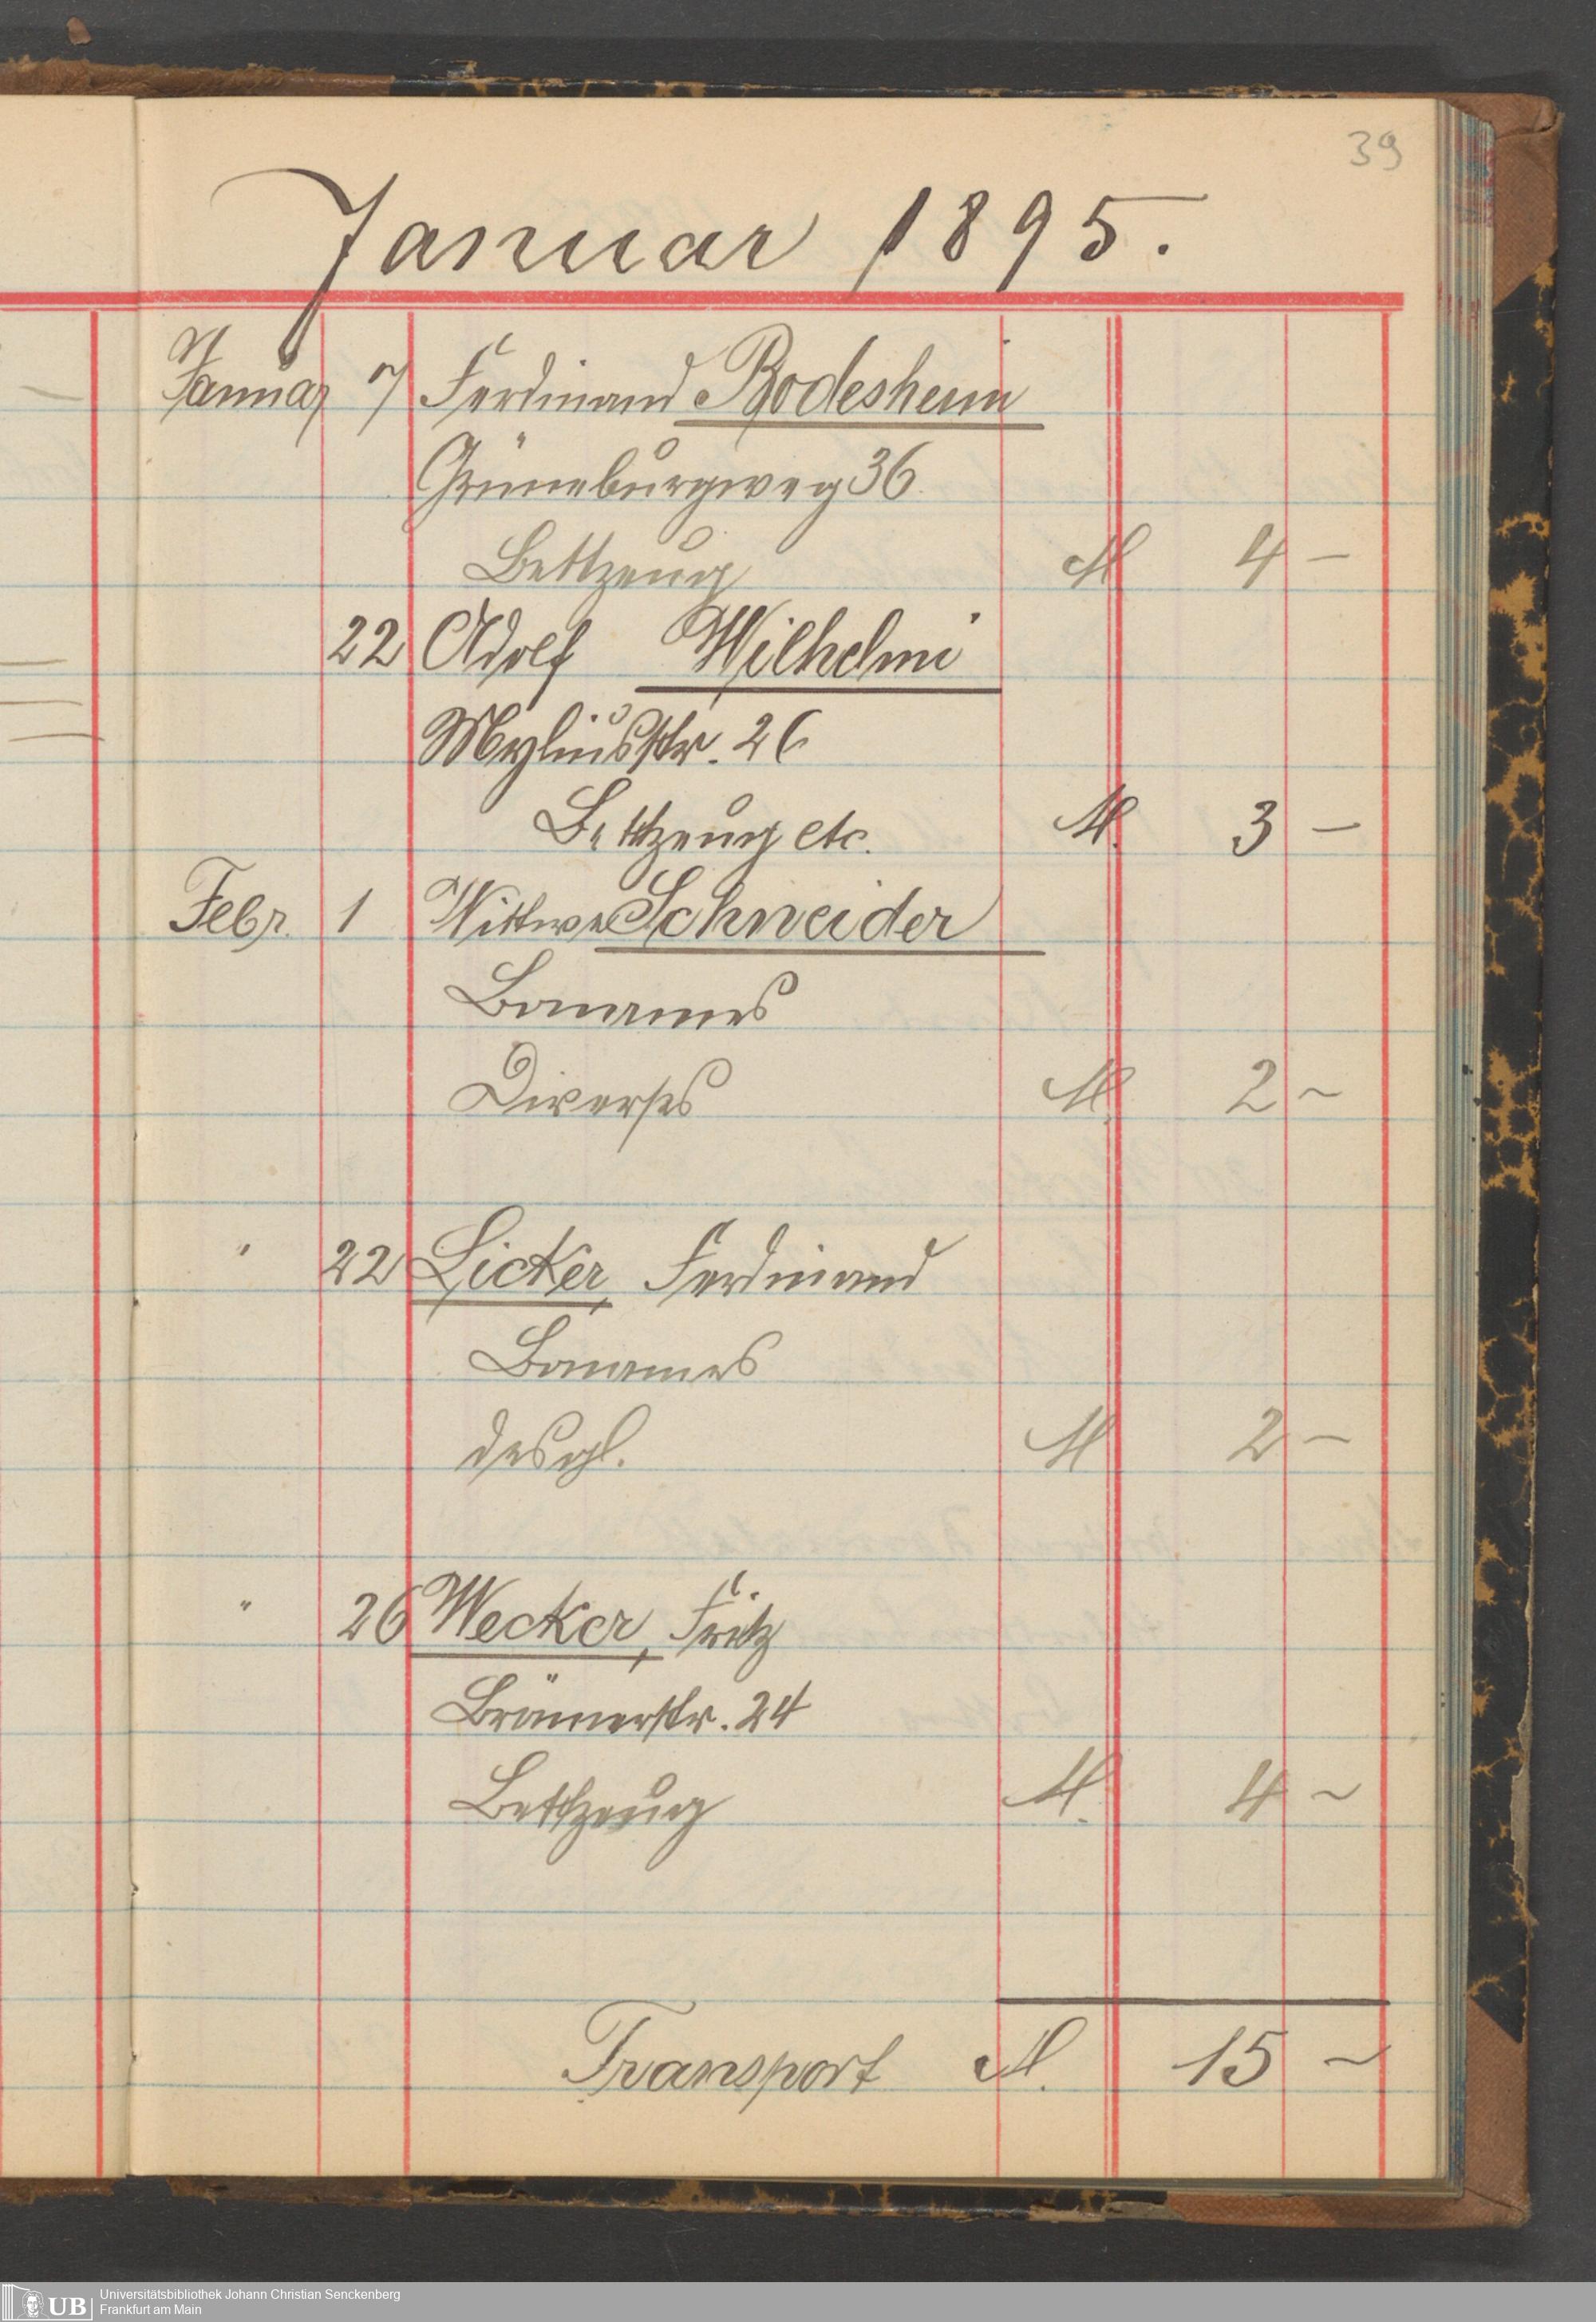 39
Januar 1895.
Januar 7 Ferdinand Rodesheim
Grüneburgweg 36
Bettzeug M 4 —
22 Adolf Wilhelmi
Myliusstr. 26
Bettzeug etc. M. 3 —
Febr. 1 Wittwe Schneider
Bonames
Diverses M. 2 ~
" 22 Licker, Ferdinand
Bonames
desgl. M 2 —
" 26 Wecker, Fritz
Brönnerstr. 24
Bettzeug M. 4 ~
Transport M. 15 ~
UB Universitätsbibliothek Johann Christian Senckenberg
Frankfurt am Main